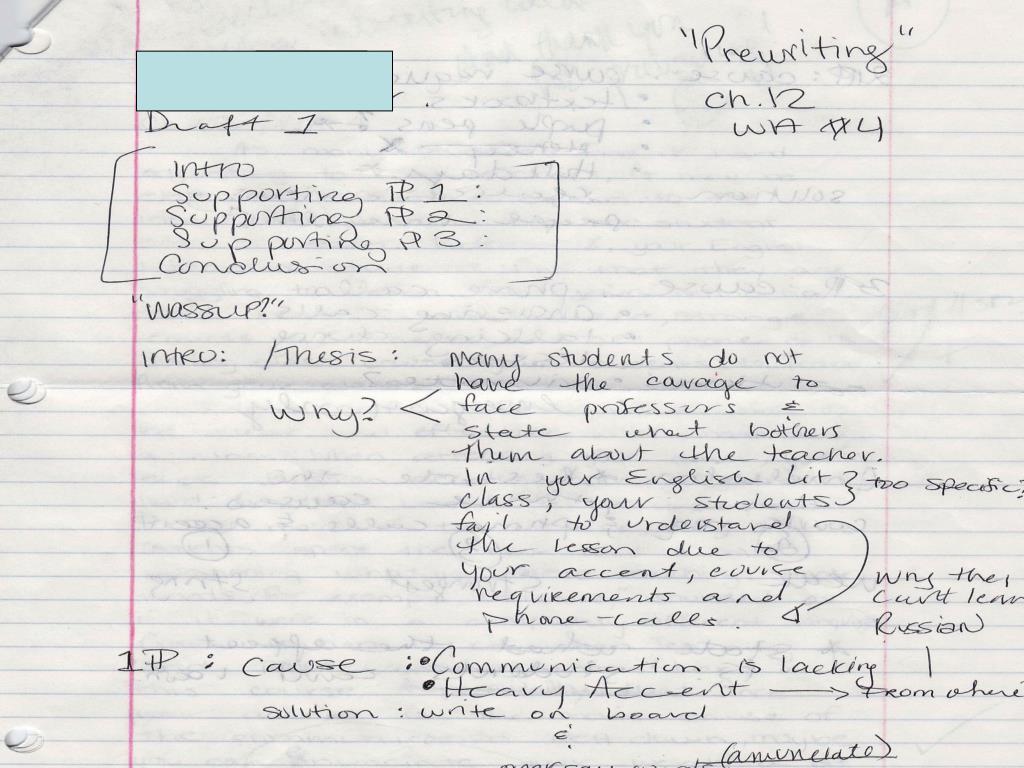 "Prewriting"
ch.12
WA #4
Draft 1
Intro
Supporting ¶ 1:
Supporting ¶ 2:
Supporting ¶ 3:
Conclusion
"Wassup?"
Intro: /Thesis: many students do not
have the courage to
Why? < face professors &
state what bothers
them about the teacher.
In your English Lit } too specific?
class, your students
fail to understand
the lesson due to
your accent, course
requirements and
phone-calls.
why they
can't learn
Russian
1 ¶: cause: • Communication is lacking
• Heavy Accent → from where
solution: write on board
&
(anunciate)